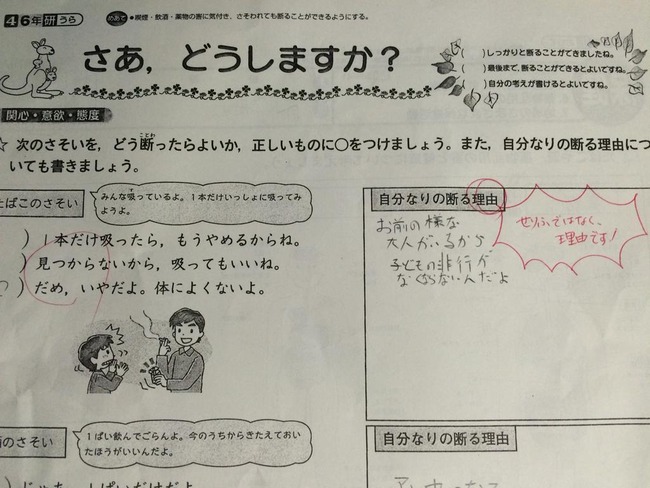 4 6年 研 うら めあて ●喫煙・飲酒・薬物の害に気付き、さそわれても断ることができるようにする。
さあ，どうしますか？
( )しっかりと断ることができましたね。
( )最後まで，断ることができるとよいですね。
( )自分の考えが書けるとよいですね。
関心・意欲・態度
☆ 次のさそいを，どう断ったらよいか，正しいものに○をつけましょう。また，自分なりの断る理由につ
ことわ
いても書きましょう。
たばこのさそい
みんな吸っているよ。1本だけいっしょに吸ってみ
ようよ。
) 1本だけ吸ったら，もうやめるからね。
) 見つからないから，吸ってもいいね。
) だめ，いやだよ。体によくないよ。
自分なりの断る理由
お前の様な
大人がいるから
子どもの非行が
なくならないんだよ
せりふではなく、
理由です！
のさそい
1ぱい飲んでごらんよ。今のうちからきたえておい
たほうがいいんだよ。
自分なりの断る理由